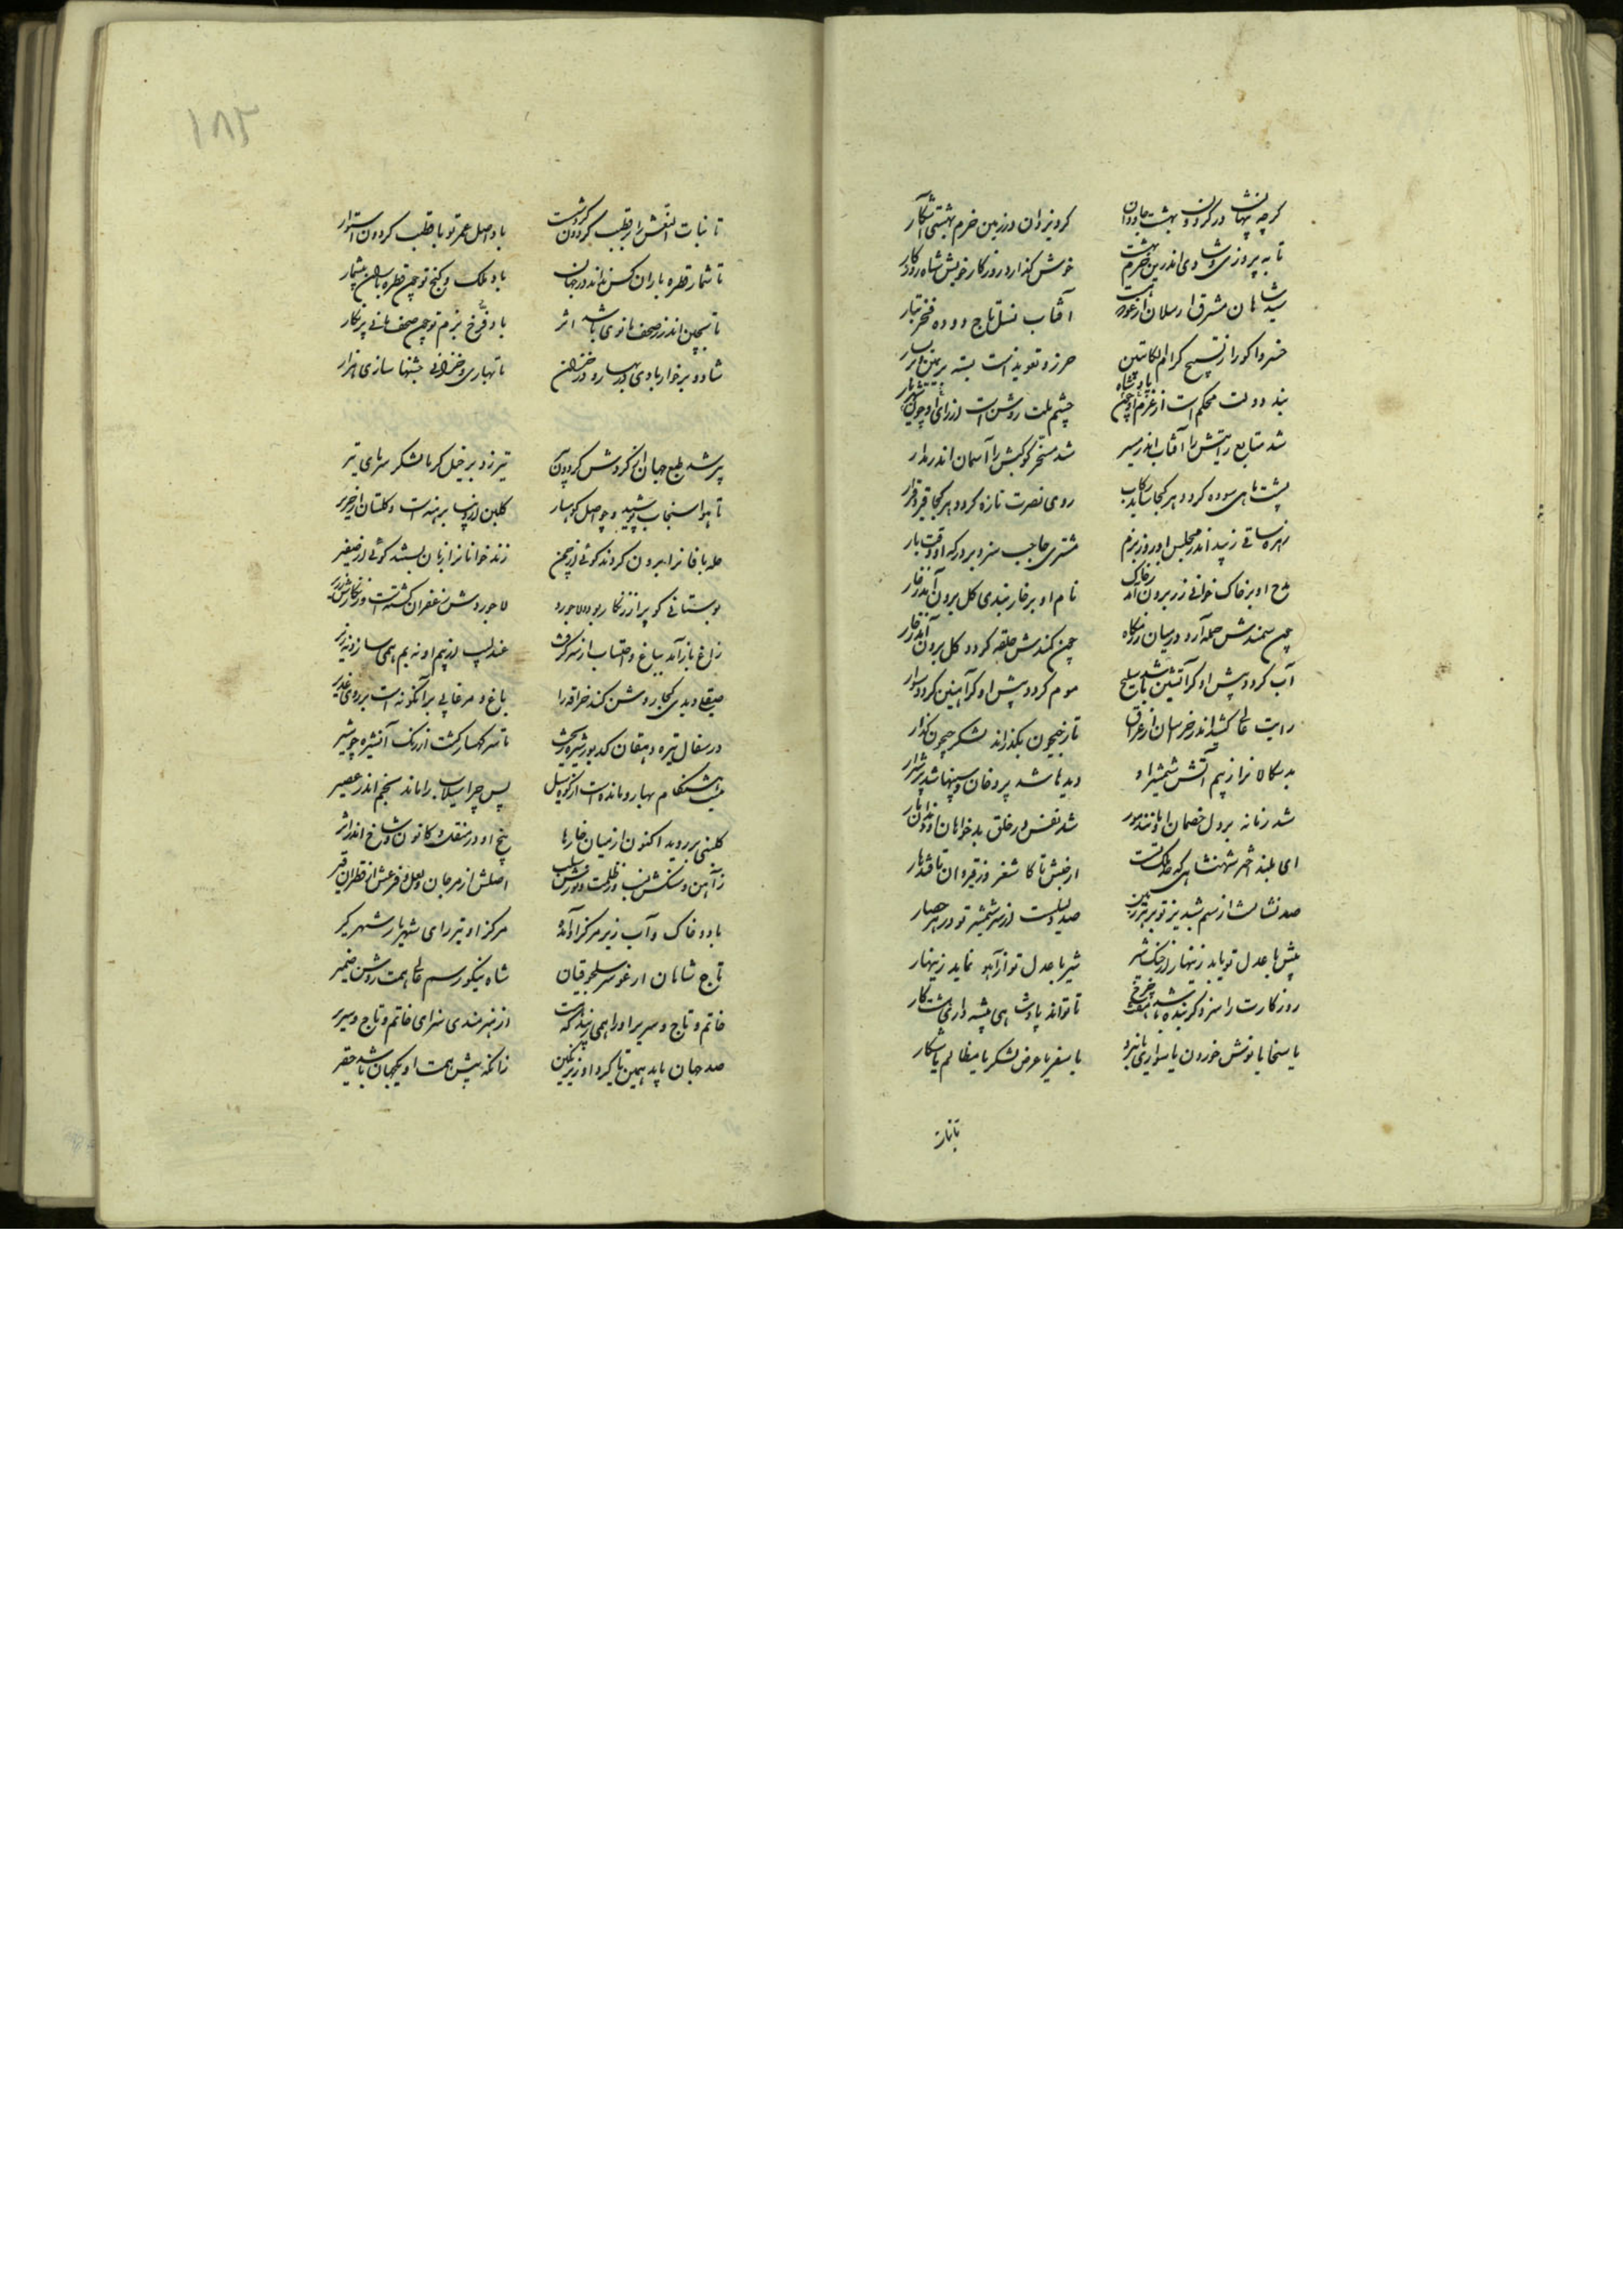 کرچه پنهانست در کردون بهشت جاودان کرد یزدان در زمین خرم بهشتی آشکار
تا به پیروزی و شادی اندرین خرم بهشت خوش کذارد روزکار خویش شاه روزکار
سید شاهان مشرق ارسلان ارغو آفتاب نسل تاج دوده فخر تبار
خسروا کورا ز تسبیح کرام الکاتبین حرز و تعویذست بسته بر یمین و بر یسار
بند دولت محکم است از عزم او چون ملت روشن است از رای او چون
شد متابع رایتش را آفتاب اندر مسیر شد مسخر کوکبش را آسمان اندر مدار
پشت ماهی سوده کردد هر کجا ساید رکاب روی نصرت تازه کردد هر کجا کیرد قرار
زهره ساقی زیبد اندر مجلس او روز بزم مشتری حاجب سزد بر درکه او وقت بار
مدح او بر خاک خوانی زر برون آید ز خاک نام او بر خار بندی کل برون آید ز خار
چون سمندش حمله آرد در میان رزمکاه چون کمندش حلقه کردد کل برون آید ز خار
آب کردد پیش او کر آتشین باشد سلیح موم کردد پیش او کر آهنین کردد سوار
رایت عالی کشید اندر خراسان از عراق تا ز جیحون بکذراند لشکر جیحون کذار
بدسکالانرا ز بیم آتش شمشیر او دیدها شد پر دخان و سینها شد پر شرار
شد زمانه بر دل خصمان او مانند مور شد نفس در خلق بدخواهان او مانند مار
ای بلند اختر شهنشاهی که ملک تست از حبش تا کاشغر وز قیروان تا قندهار
صد نشانست از سم شبدیز تو بر هر زمین صد دلیلست از سر شمشیر تو در هر حصار
میش با عدل تو یابد زینهار از چنک شیر شیر با عدل تو از آهو نماید زینهار
روزکارت را سزد کر بنده باشد چرخ تا تواند پادشاهی پیشه داری شت کار
یا سخا یا نوش خوردن یا سواری یا نبرد یا سفر یا عرض لشکر یا مظالم یا شکار
تا بنات
۱۸۲
تا بنات النعش را بر قطب کردون کردشست باد اصل عمر تو با قطب کردون استوار
تا شمار قطره باران کس نداند در جهان باد ملک و کنج تو چون قطره باران بیشمار
تا بچین اندر ز صحف مانوی باشد اثر باد فرخ بزم تو چون صحف مانی پر نکار
شاد و برخوردار بادی در بهار و در خزان تا بهاری و خزانی جشنها سازی هزار
پیر شد طبع جهان از کردش کردون پیر تیر زد بر خیل کرما لشکر سرمای تیر
تا هوا سنجاب پوشید و حواصل کوهسار کلبن از دیبا برهنه است و کلستان از حریر
حله بافانرا برون کردند کوئی از چمن زند خوانانرا زبان بستند کوئی از صفیر
بوستانی کو پر از زنکار بود و لاجورد لاجوردش زعفران کشته است و زنکارش زریر
زاغ باز آمد بباغ و احتساب از سر کرفت عندلیب از بیم او نه بم همی سازد نه زیر
صیقلی دیدی کجا روشن کند مخراقه را باغ و مرغابی بر آنکونه است بر روی غدیر
در سفال تیره دهقان کدیور شیره ریخت تا سر کهسار کشت از رنک آن شیره چو شیر
نیست هنکام بهار و مانده است از کوه سیل پس چرا سیلاب را ماند بخم اندر عصیر
کلبنی بر روید اکنون از میان خارها بیخ او در منقل و کانون و شاخ اندر اثیر
ز آهن و سنکش نسب وز ظلمت و نورش سلب اصلش از مرجان و لعل و فرعش از قطران و قیر
باد و خاک و آب زیر مرکز او آمده مرکز او نیز رای شهریار شهر کیر
تاج شاهان ارغو سر سلجوقیان شاه نیکورسم عالی همت روشن ضمیر
خاتم و تاج و سریر او را همی زیبد که هست از هنرمندی سزای خاتم و تاج و سریر
صد جهان باید همین تا کیرد او زیر نکین زانکه پیش همت او یکجهان باشد حقیر